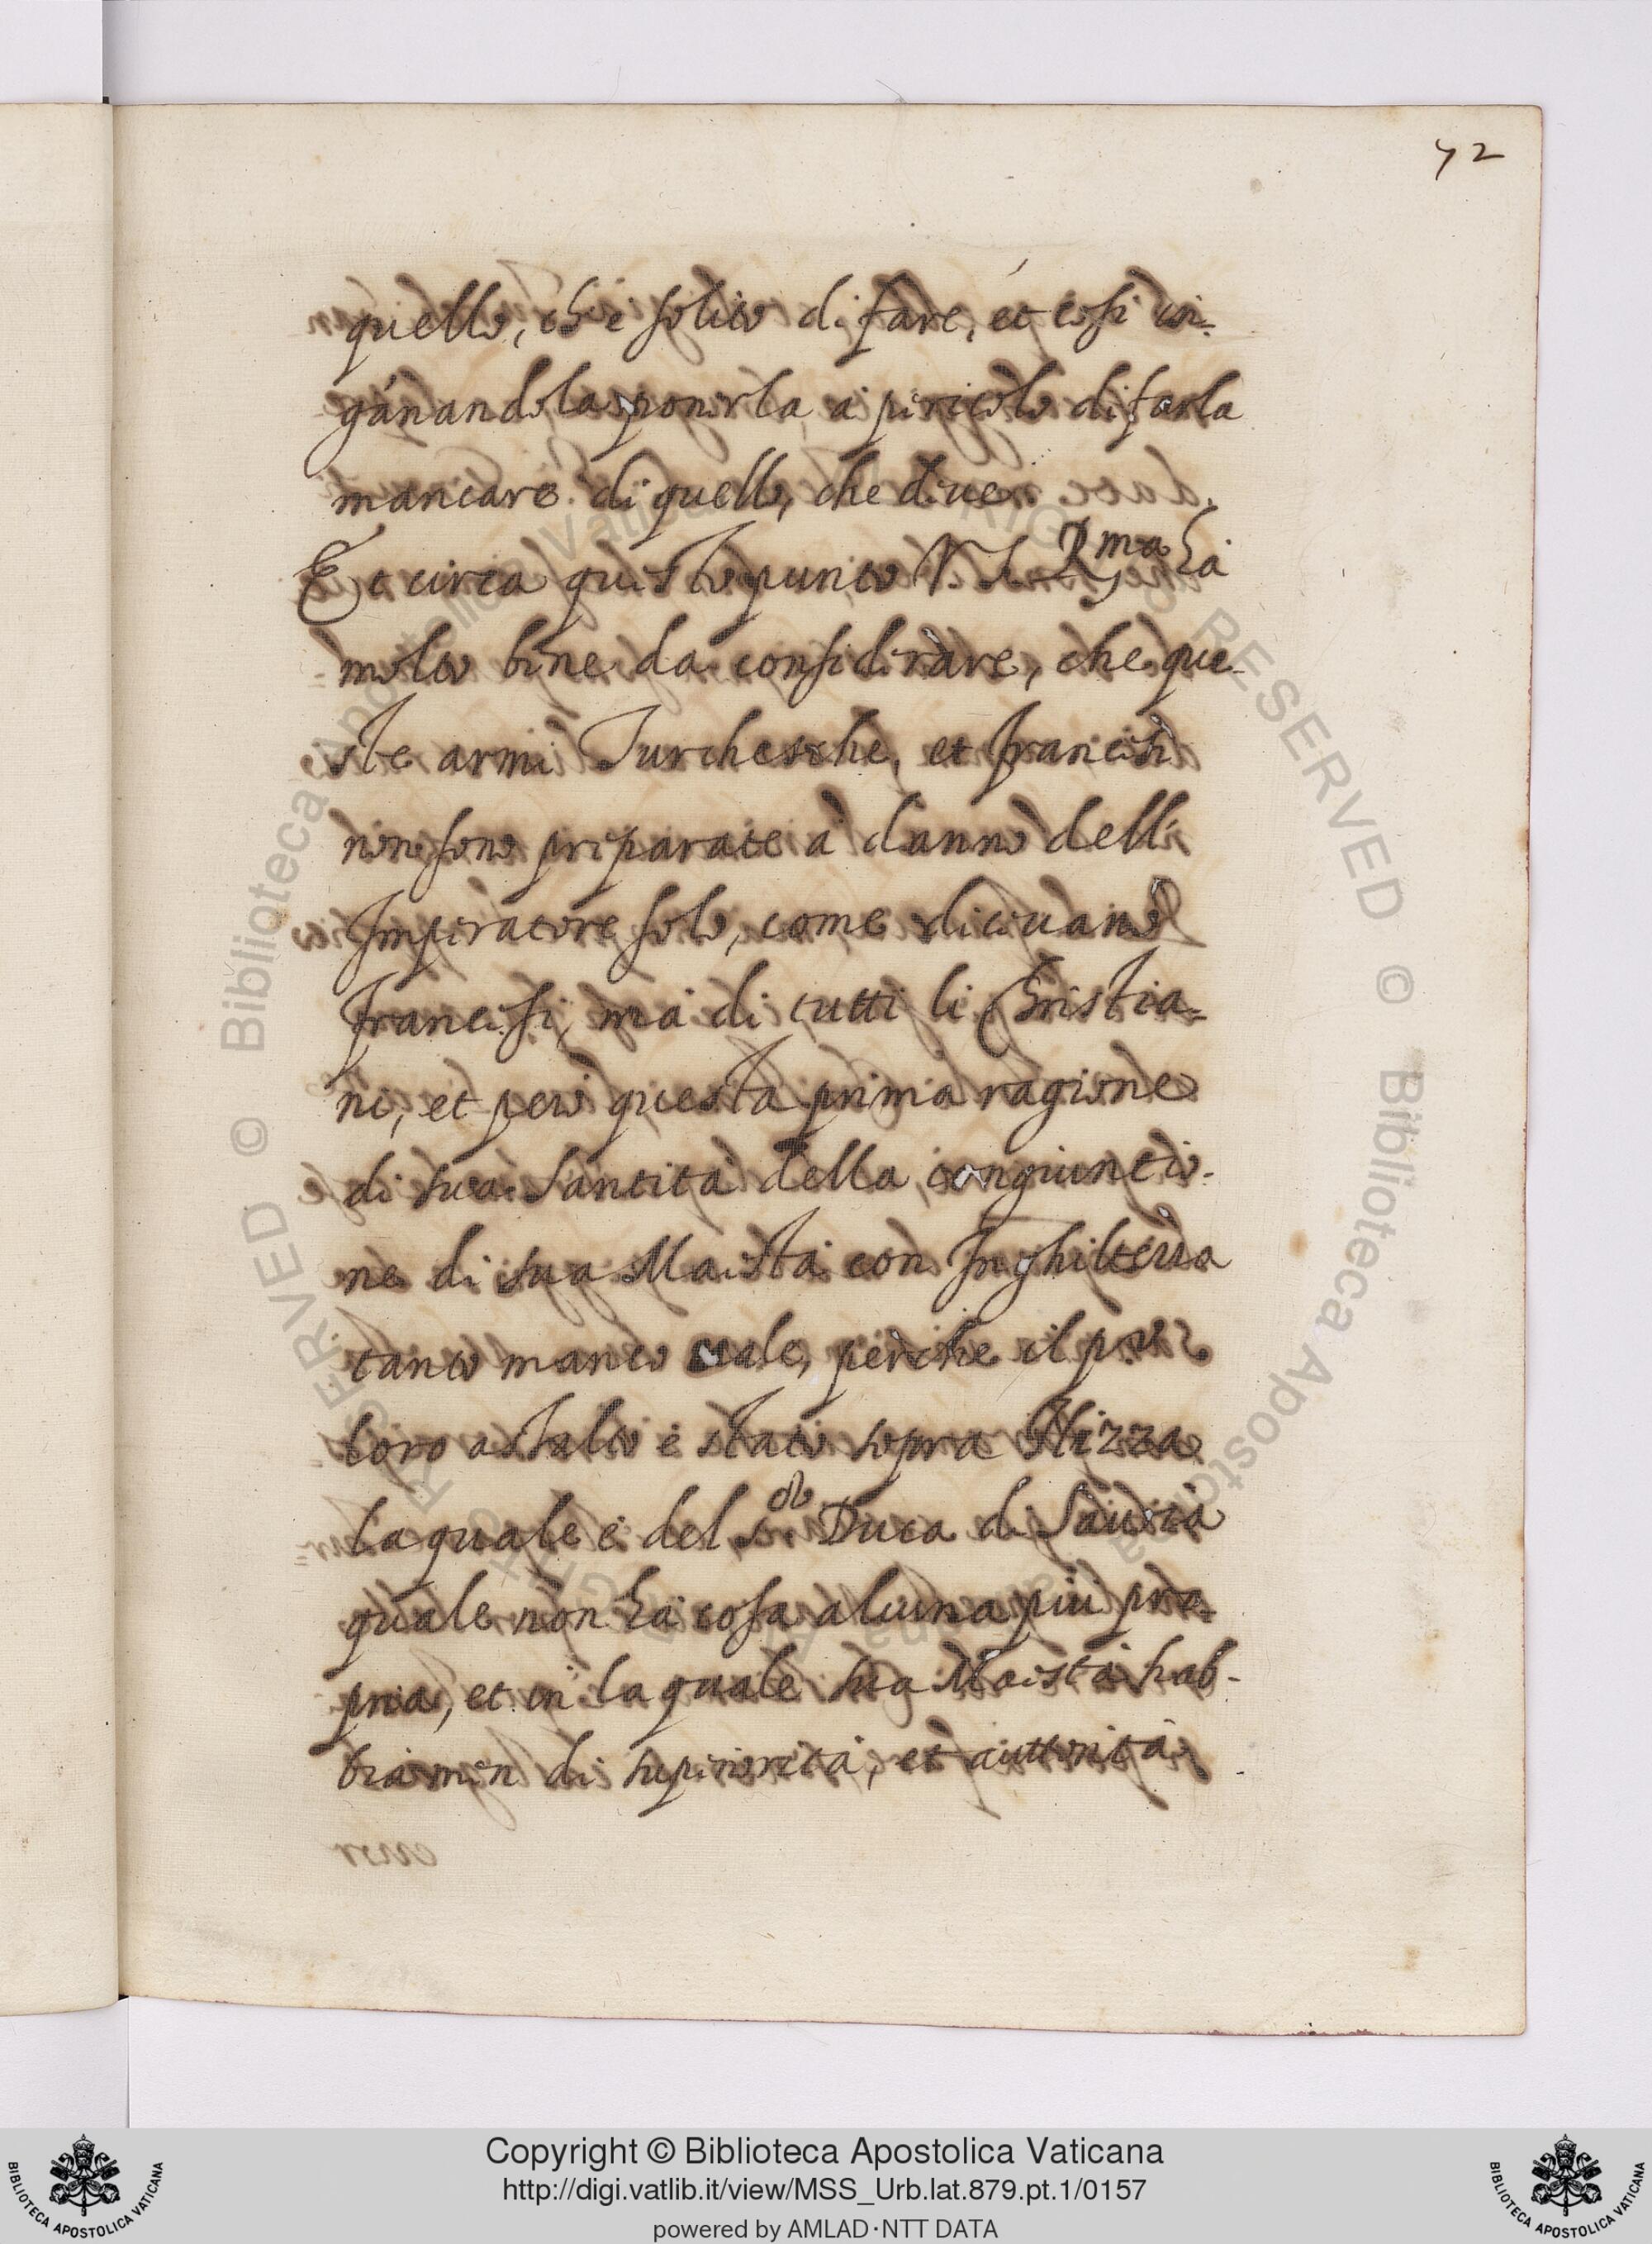 72
quello, che è solito di fare, et cosi in=
gánandola ponerla à pericolo di farla
mancare di quello, che deve.
Et circa questo punto V. S. R.ma hà
molto bene da considerare, che que-
ste armi Turchesche, et francesi
non sono preparate à danno dell'
Imperatore solo, come diceuano
francesi, mà di tutti li Christia=
ni, et però questa prima ragione
di sua Santità della congiuntio-
ne di sua Maestà con Inghilterra
tanto manco uale, perche il primo
loro assalto è stato sopra Nizza
la quale è del s.or Duca di Sauoia
quale non hà cosa alcuna piu pro=
pria, et in la quale sua Maestà hab-
bia men di superiorità, et auttorità
© Biblioteca Apostolica Vaticana
RESERVED © Biblioteca Apostolica
Copyright © Biblioteca Apostolica Vaticana
http://digi.vatlib.it/view/MSS_Urb.lat.879.pt.1/0157
powered by AMLAD·NTT DATA
BIBLIOTECA APOSTOLICA VATICANA
BIBLIOTECA APOSTOLICA VATICANA